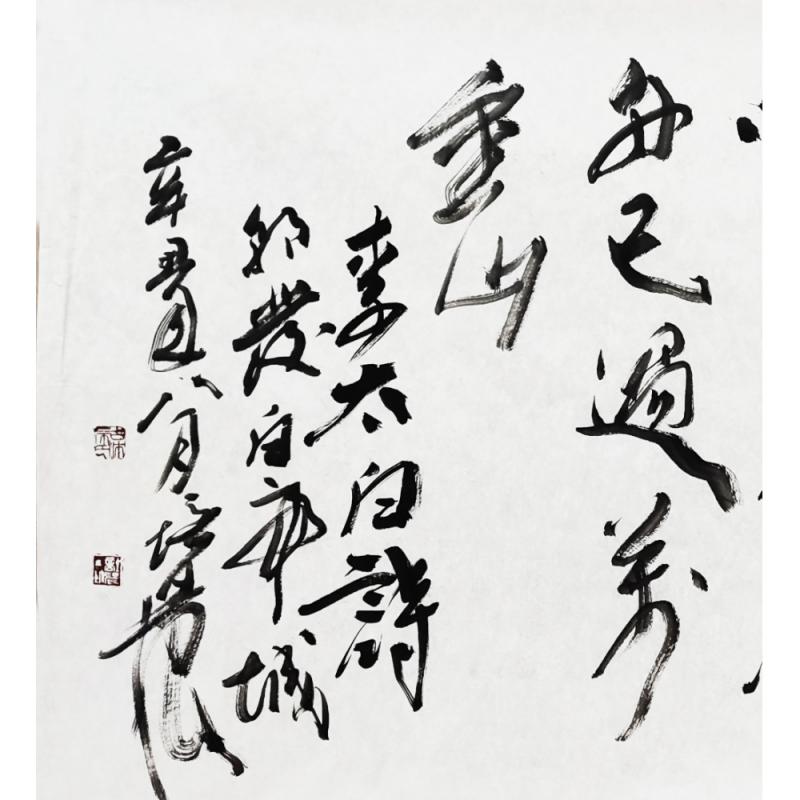 舟已過萬
重山
李太白詩
朝發白帝城
辛丑八月培